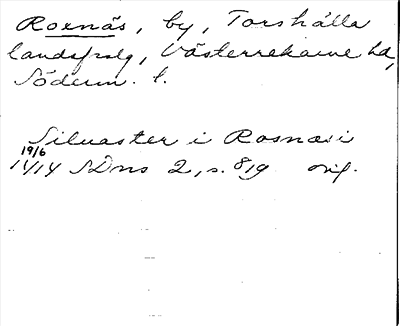 Roxnäs, by, Torshälla
landsfslg, Västerrekarne hd,
Söderm. l.
Siluaster i Rosnæs i
19/6
1414 SDns 2, s. 819 orig.